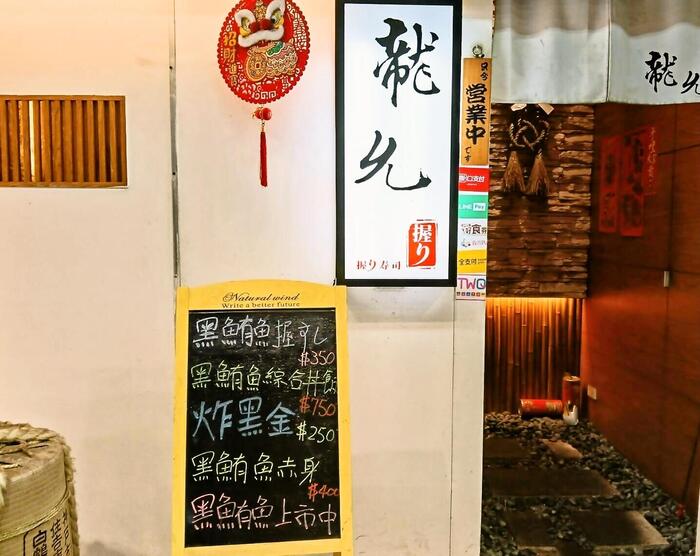 招財進寶
龍
允
握り
握り寿司
只今
営業中
です
龍允
街口支付
LINE Pay
全支付
TWQ
Natural wind
Write a better future
黑鮪魚握すし
$350
黑鮪魚綜合丼飯
$750
炸黑金
$250
黑鮪魚赤身
$400
黑鮪魚上市中
白鶴